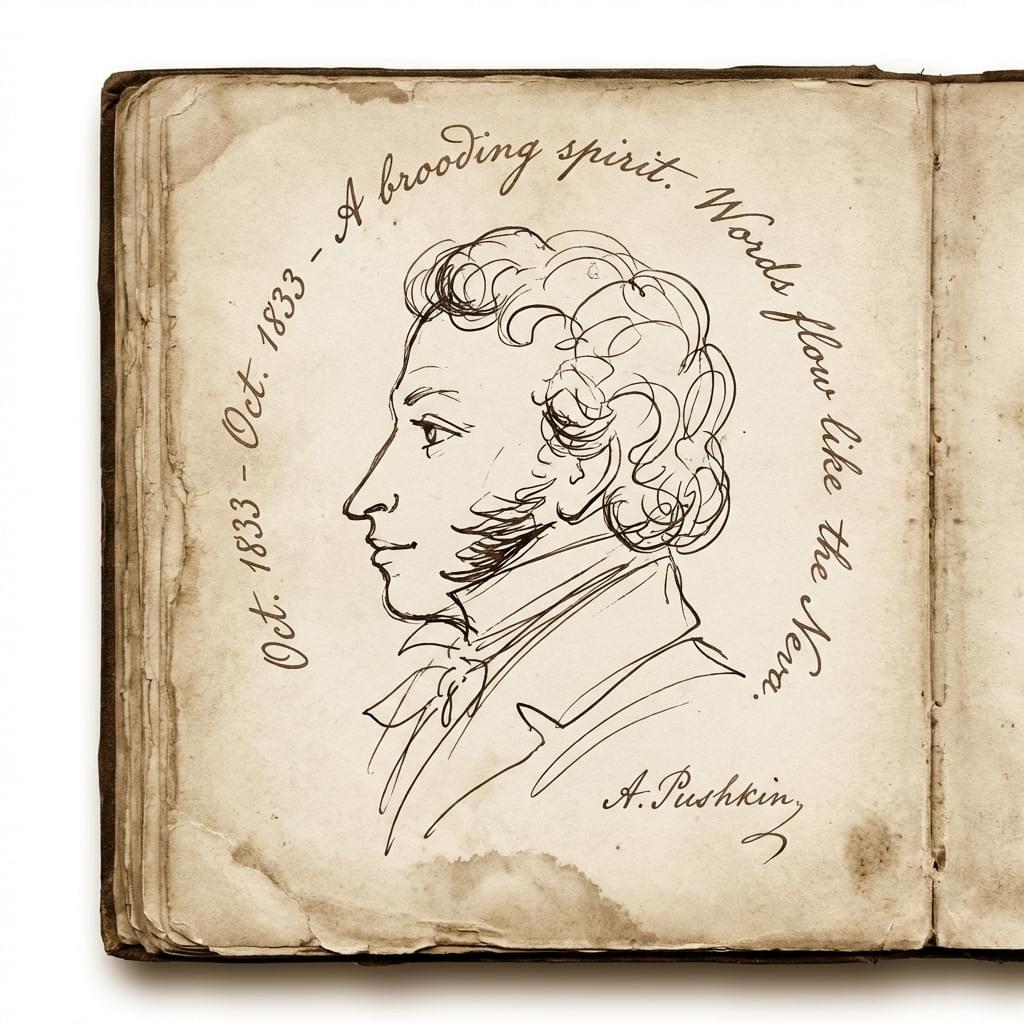 Oct. 1833 – Oct. 1833 – A brooding spirit. Words flow like the Neva.
A. Pushkin